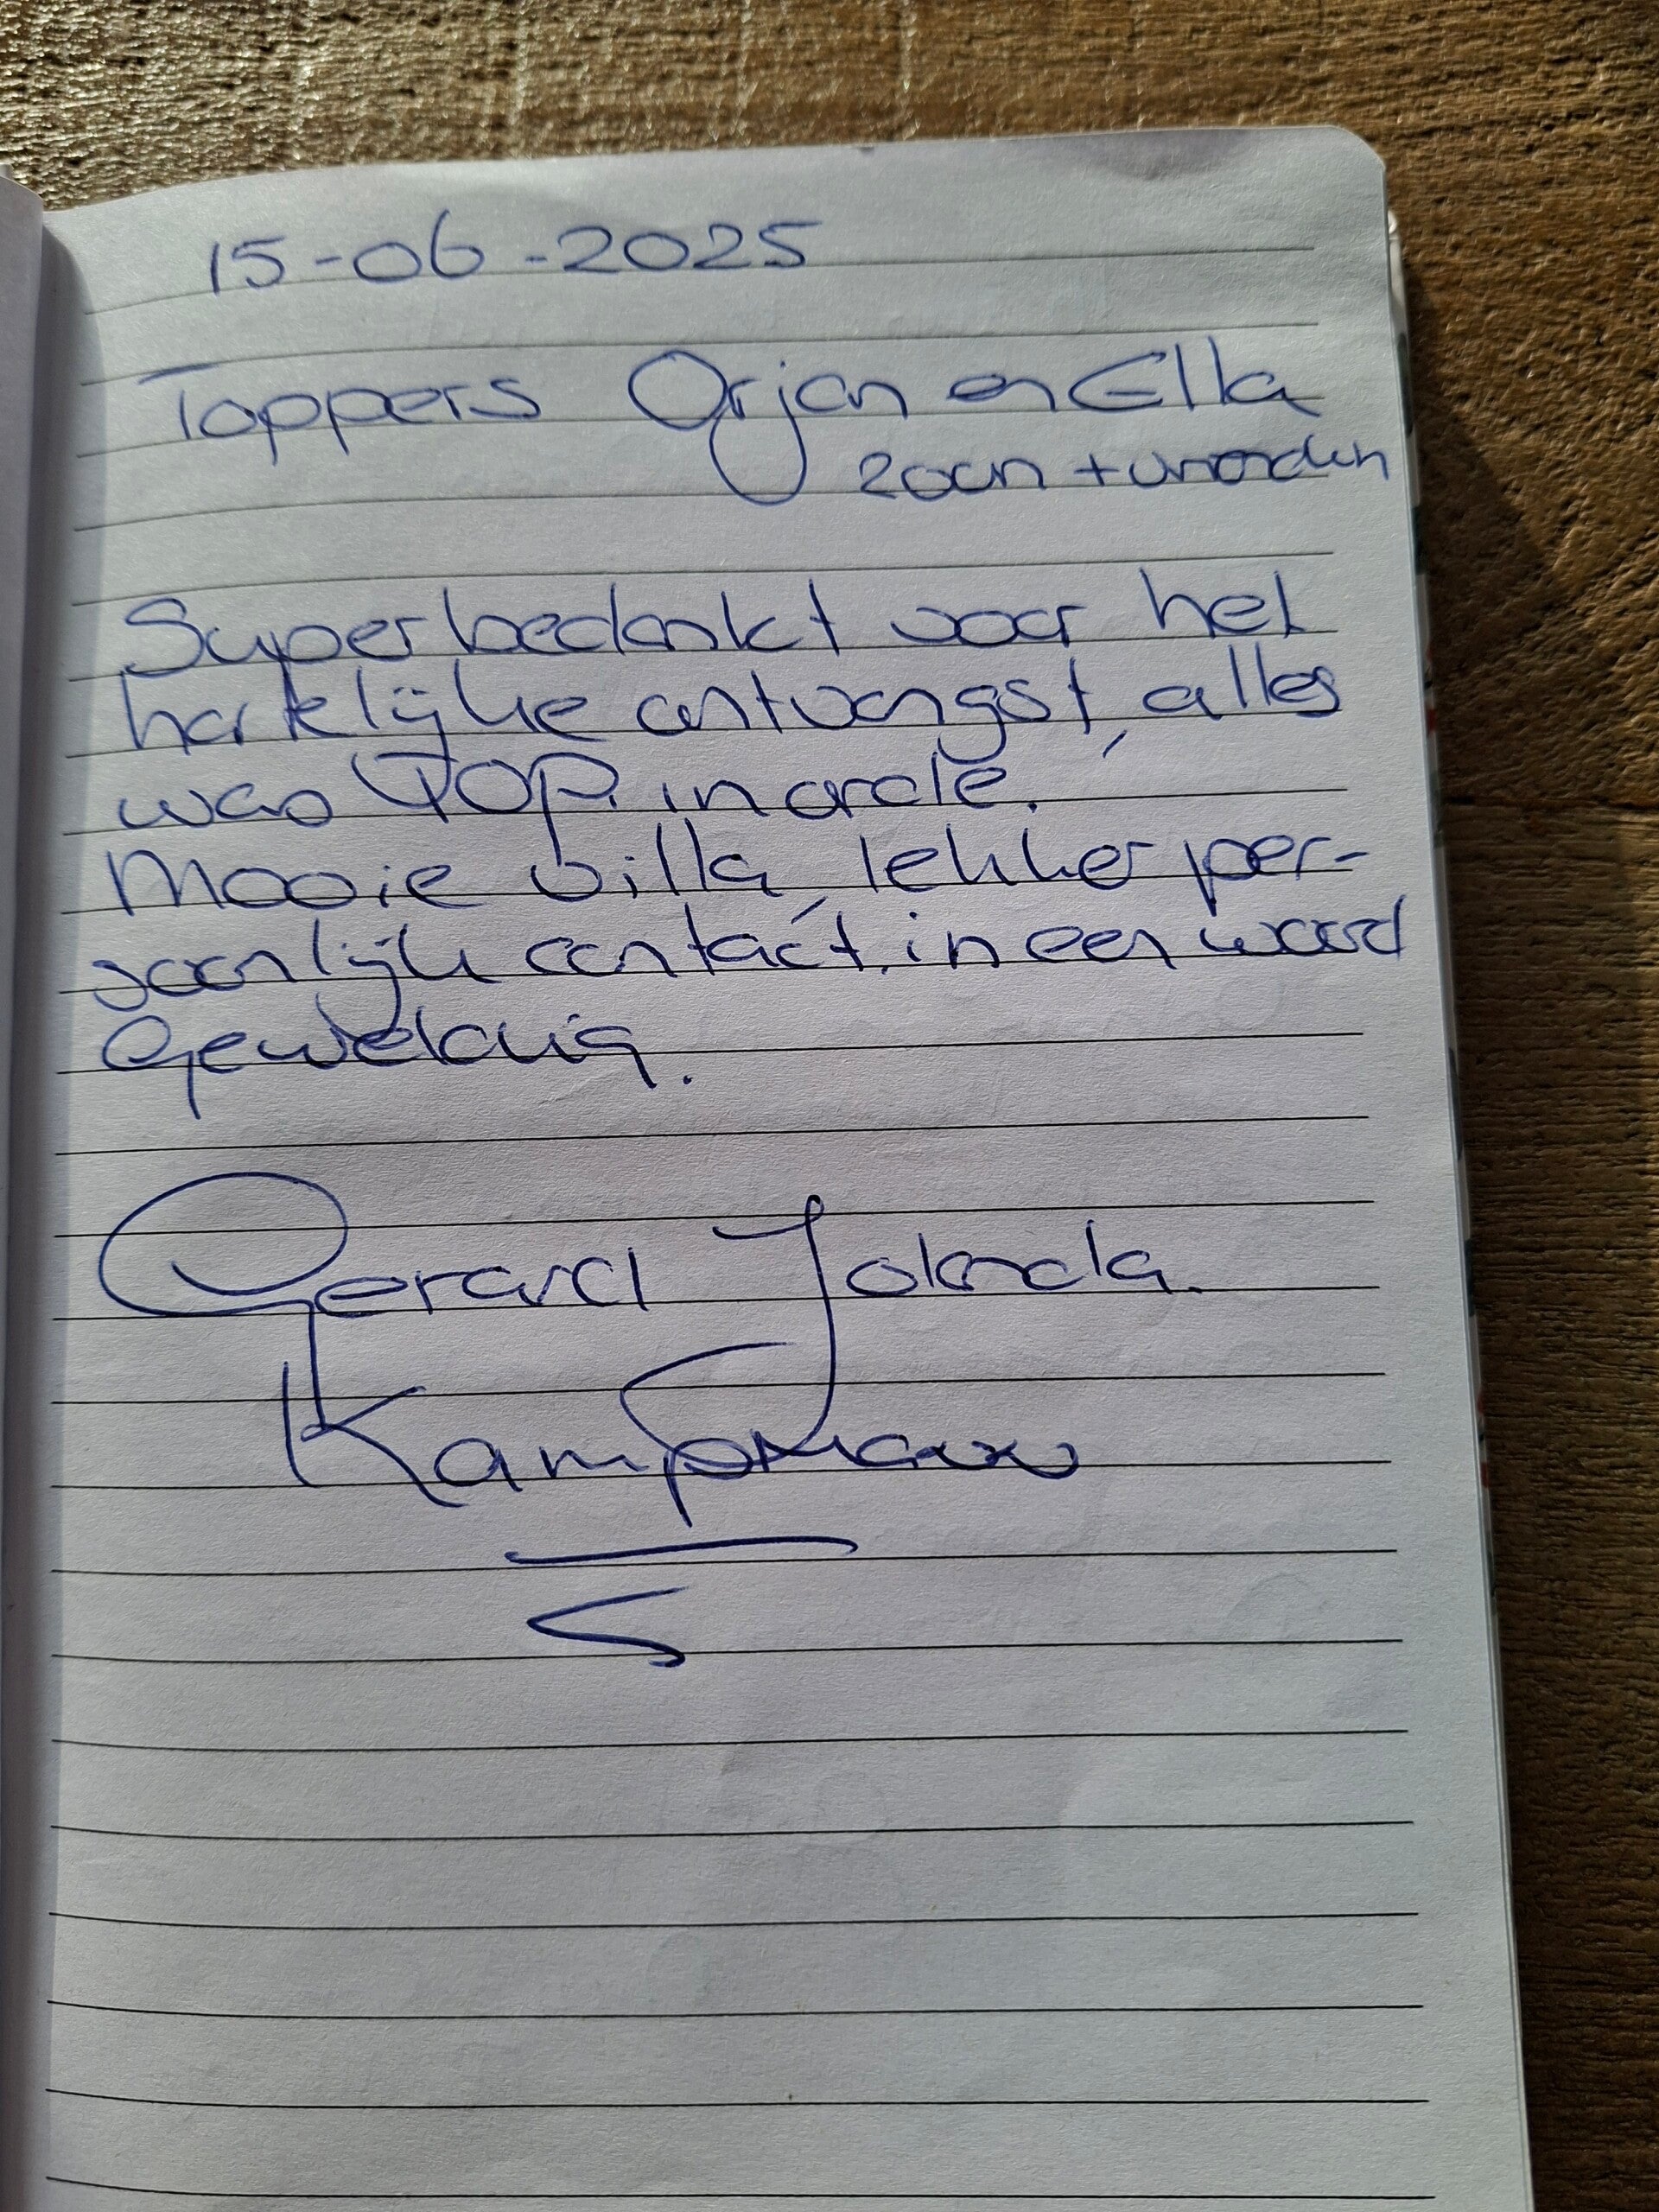 15-06-2025
Toppers Orjan en Ella
zoon + vrienden
Super bedankt voor het
hartelijke ontvangst, alles
was TOP. in orde.
Mooie villa, lekker per-
soonlijk contact, in een woord
Geweldig.
Gerard Jolanda.
Kampman